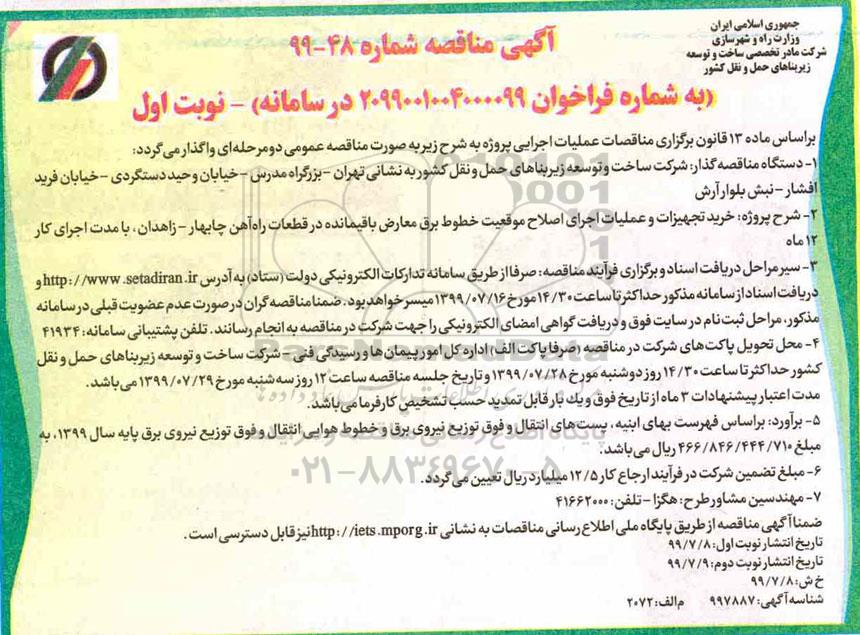 جمهوری اسلامی ایران
وزارت راه و شهرسازی
شرکت مادر تخصصی ساخت و توسعه
زیربناهای حمل و نقل کشور
آگهی مناقصه شماره ۴۸-۹۹
(به شماره فراخوان ۲۰۹۹۰۰۱۰۰۴۰۰۰۰۹۹ در سامانه) - نوبت اول
براساس ماده ۱۳ قانون برگزاری مناقصات عملیات اجرایی پروژه به شرح زیر به صورت مناقصه عمومی دو مرحله‌ای واگذار می‌گردد:
۱- دستگاه مناقصه گذار: شرکت ساخت و توسعه زیربناهای حمل و نقل کشور به نشانی تهران - بزرگراه مدرس - خیابان وحید دستگردی - خیابان فرید
افشار - نبش بلوار آرش
۲- شرح پروژه: خرید تجهیزات و عملیات اجرای اصلاح موقعیت خطوط برق معارض باقیمانده در قطعات راه آهن چابهار - زاهدان، با مدت اجرای کار
۱۲ ماه
۳- سیر مراحل دریافت اسناد و برگزاری فرآیند مناقصه: صرفا از طریق سامانه تدارکات الکترونیکی دولت (ستاد) به آدرس http://www.setadiran.ir و
دریافت اسناد از سامانه مذکور حداکثر تا ساعت ۱۴/۳۰ مورخ ۱۳۹۹/۰۷/۱۶ میسر خواهد بود. ضمنا مناقصه گران در صورت عدم عضویت قبلی در سامانه
مذکور، مراحل ثبت نام در سایت فوق و دریافت گواهی امضای الکترونیکی را جهت شرکت در مناقصه به انجام رسانند. تلفن پشتیبانی سامانه: ۴۱۹۳۴
۴- محل تحویل پاکت‌های شرکت در مناقصه (صرفا پاکت الف): اداره کل امور پیمان ها و رسیدگی فنی - شرکت ساخت و توسعه زیربناهای حمل و نقل
کشور حداکثر تا ساعت ۱۴/۳۰ روز دوشنبه مورخ ۱۳۹۹/۰۷/۲۸ و تاریخ جلسه مناقصه ساعت ۱۲ روز سه شنبه مورخ ۱۳۹۹/۰۷/۲۹ می‌باشد.
مدت اعتبار پیشنهادات ۳ ماه از تاریخ فوق و یک بار قابل تمدید حسب تشخیص کارفرما می‌باشد.
۵- برآورد: براساس فهرست بهای ابنیه، پست‌های انتقال و فوق توزیع نیروی برق و خطوط هوایی انتقال و فوق توزیع نیروی برق پایه سال ۱۳۹۹، به
مبلغ ۴۶۶/۸۴۶/۴۴۴/۷۱۰ ریال می‌باشد.
۶- مبلغ تضمین شرکت در فرآیند ارجاع کار ۱۲/۵ میلیارد ریال تعیین می‌گردد.
۷- مهندسین مشاور طرح: هگزا - تلفن: ۴۱۶۶۲۰۰۰
ضمنا آگهی مناقصه از طریق پایگاه ملی اطلاع رسانی مناقصات به نشانی http://iets.mporg.ir نیز قابل دسترسی است.
تاریخ انتشار نوبت اول: ۹۹/۷/۸
تاریخ انتشار نوبت دوم: ۹۹/۷/۹
خ ش: ۹۹/۷/۸
شناسه آگهی: ۹۹۷۸۸۷ م الف: ۲۰۷۲
ParsNamadData
پایگاه اطلاع رسانی مناقصه و مزایده
۰۲۱-۸۸۳۴۹۶۷۰-۵